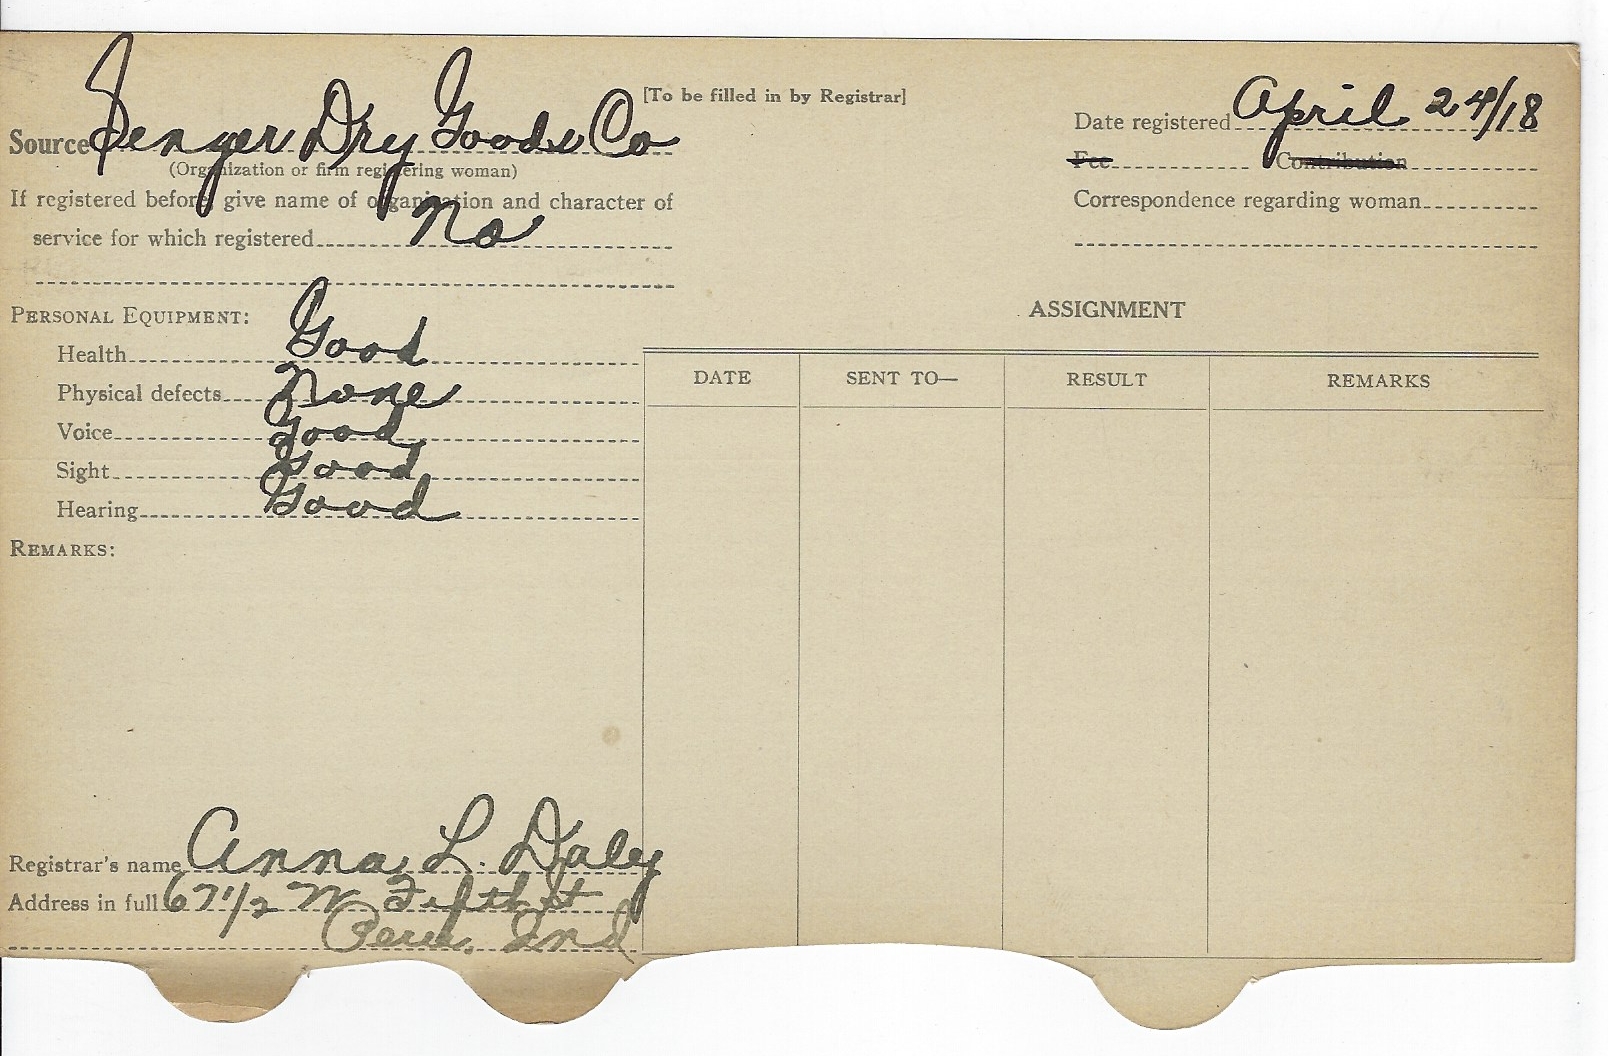 [To be filled in by Registrar]
Source Senger Dry Goods Co
(Organization or firm registering woman)
If registered before, give name of organization and character of
service for which registered No
Date registered April 24/18
Fee Contribution
Correspondence regarding woman
PERSONAL EQUIPMENT:
Health Good
Physical defects None
Voice Good
Sight Good
Hearing Good
REMARKS:
ASSIGNMENT
DATE SENT TO— RESULT REMARKS
Registrar's name Anna L. Daley
Address in full 67 1/2 W Fifth st
Peru, Ind